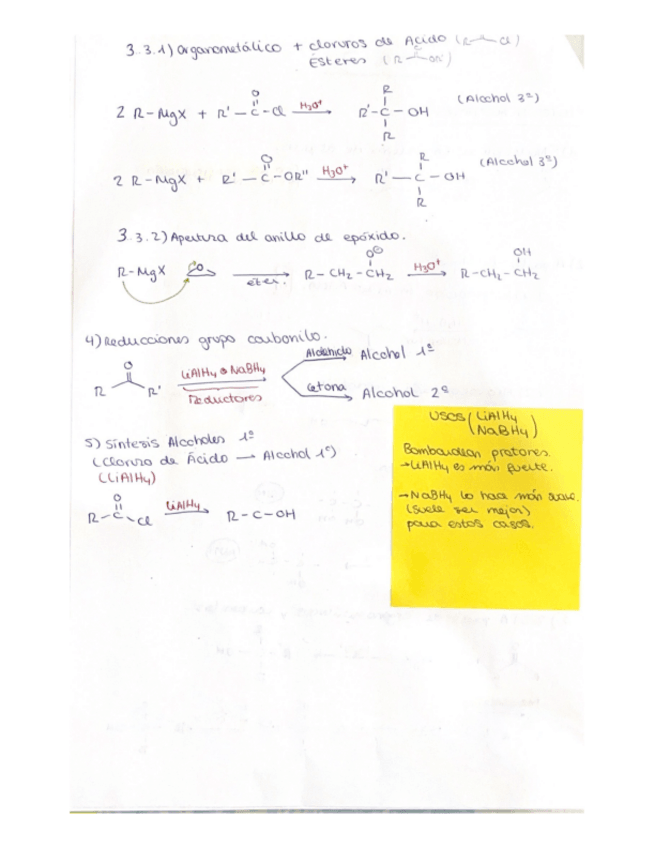 3.3.1) Organometálico + cloruros de Ácido (R-C-Cl)
Ésteres (R-C-OR')
2 R-MgX + R'-C(=O)-Cl H3O+ → R'-C(R)(R)-OH (Alcohol 3º)
2 R-MgX + R'-C(=O)-OR'' H3O+ → R'-C(R)(R)-OH (Alcohol 3º)
3.3.2) Apertura del anillo de epóxido.
R-MgX O → éter. R-CH2-CH2 O⊖ H3O+ → R-CH2-CH2 OH
4) Reducciones grupo carbonilo.
R C=O R' LiAlH4 o NaBH4 → Reductores
Aldehído → Alcohol 1º
Cetona → Alcohol 2º
5) Síntesis Alcoholes 1º
(Cloruro de Ácido → Alcohol 1º)
(LiAlH4)
R-C(=O)-Cl LiAlH4 → R-C-OH
USOS (LiAlH4
NaBH4)
Bombardean protones.
→ LiAlH4 es más fuerte.
→ NaBH4 lo hace más suave.
(suele ser mejor)
para estos casos.